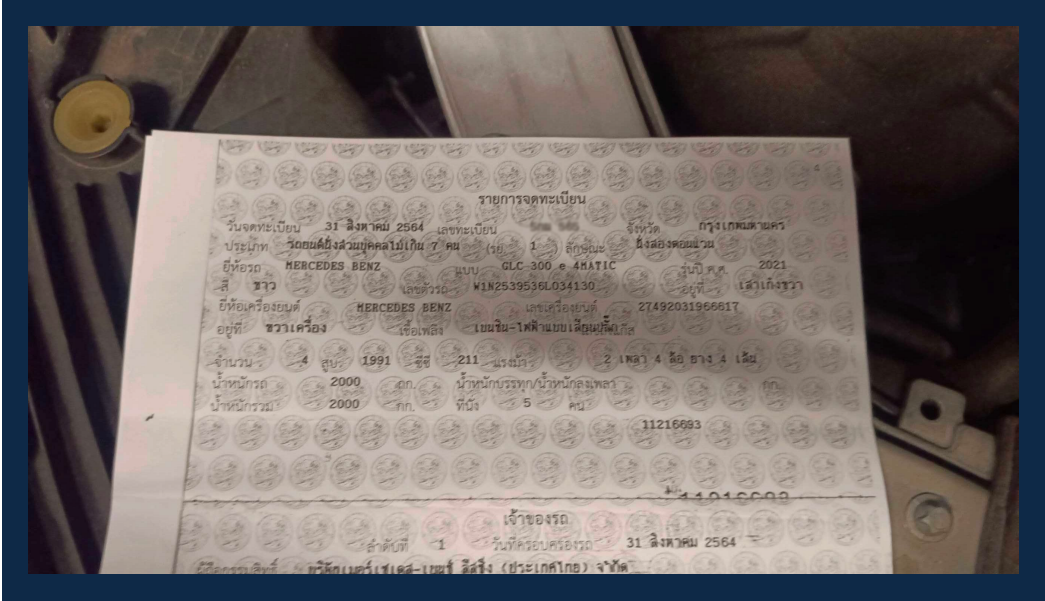 รายการจดทะเบียน
วันจดทะเบียน 31 สิงหาคม 2564 เลขทะเบียน จังหวัด กรุงเทพมหานคร
ประเภท รถยนต์นั่งส่วนบุคคลไม่เกิน 7 คน (รย. 1 ) ลักษณะ นั่งสองตอนแวน
ยี่ห้อรถ MERCEDES BENZ แบบ GLC 300 e 4MATIC รุ่นปี ค.ศ. 2021
สี ขาว เลขตัวรถ W1N2539536L034130 อยู่ที่ เสาเก๋งขวา
ยี่ห้อเครื่องยนต์ MERCEDES BENZ เลขเครื่องยนต์ 27492031966617
อยู่ที่ ขวาเครื่อง เชื้อเพลิง เบนซิน-ไฟฟ้าแบบเสียบปลั๊ก
จำนวน 4 สูบ 1991 ซีซี 211 แรงม้า 2 เพลา 4 ล้อ ยาง 4 เส้น
น้ำหนักรถ 2000 กก. น้ำหนักบรรทุก/น้ำหนักลงเพลา กก.
น้ำหนักรวม 2000 กก. ที่นั่ง 5 คน
11216693
เจ้าของรถ
ลำดับที่ 1 วันที่ครอบครองรถ 31 สิงหาคม 2564
ผู้ถือกรรมสิทธิ์ บริษัทเมอร์เซเดส-เบนซ์ ลีสซิ่ง (ประเทศไทย) จำกัด